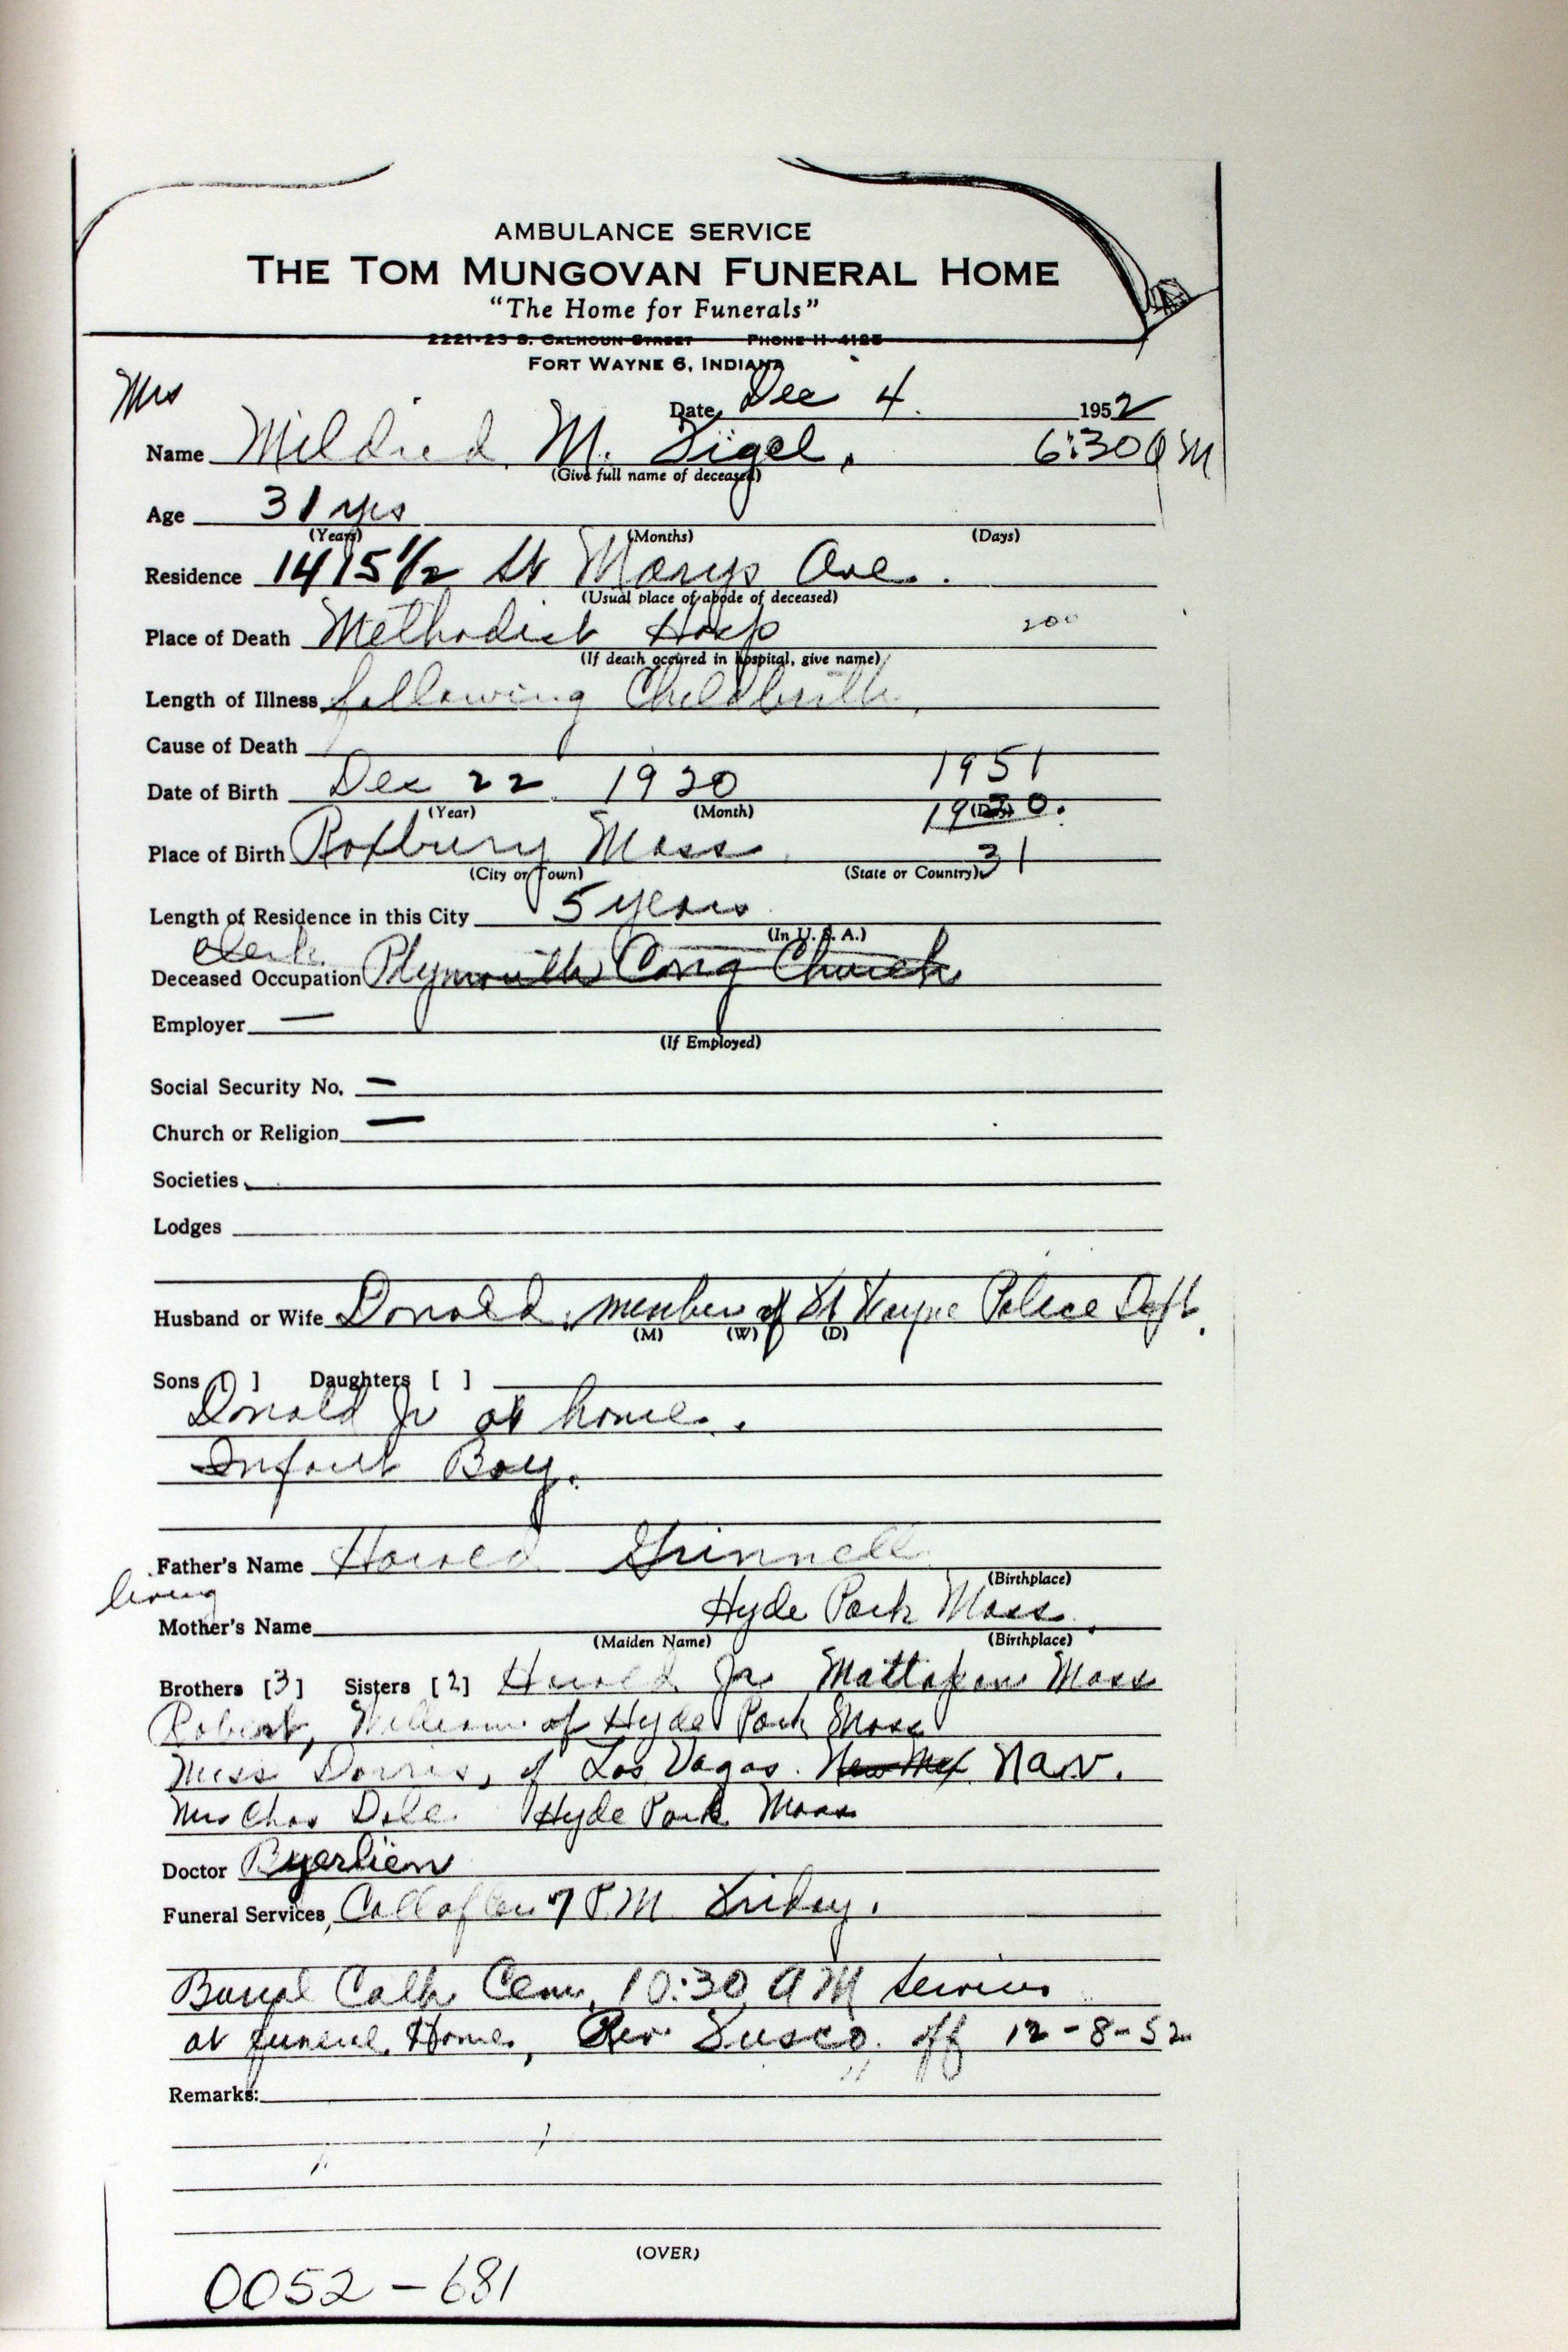 AMBULANCE SERVICE
THE TOM MUNGOVAN FUNERAL HOME
"The Home for Funerals"
2221-23 S. CALHOUN STREET PHONE H-4125
FORT WAYNE 6, INDIANA
Mrs
Date Dec 4. 1952
Name Mildred M. 6:30 AM
(Give full name of deceased)
Age 31 yrs
(Years) (Months) (Days)
Residence 1415 1/2 St Marys Ave.
(Usual place of abode of deceased)
Place of Death Methodist Hosp 200
(If death occured in hospital, give name)
Length of Illness following Childbirth
Cause of Death
1951
Date of Birth Dec 22 1920
(Year) (Month) (Day)
1920.
Place of Birth Roxbury Mass. 31
(City or Town) (State or Country)
Length of Residence in this City 5 years
(In U. S. A.)
Clerk.
Deceased Occupation Plymouth Cong Church
Employer —
(If Employed)
Social Security No. —
Church or Religion —
Societies
Lodges
Husband or Wife Donald. member of Ft Wayne Police Dept.
(M) (W) (D)
Sons [ ] Daughters [ ]
Donald Jr at home.
Infant Boy.
Father's Name Harold Grinnell
(Birthplace)
living
Hyde Park Mass.
Mother's Name
(Maiden Name) (Birthplace)
Brothers [3] Sisters [2] Harold Jr Mattapan Mass
Robert, William of Hyde Park Mass
Miss Dorris, of Las Vagas. New Mex Nav.
Mrs Chas Dole. Hyde Park Mass
Doctor Byerlien
Funeral Services Call after 7 P.M Friday.
Burial Cath Cem, 10:30 AM Services
at funeral Home, Rev. off 12-8-52
Remarks:
(OVER)
0052-681